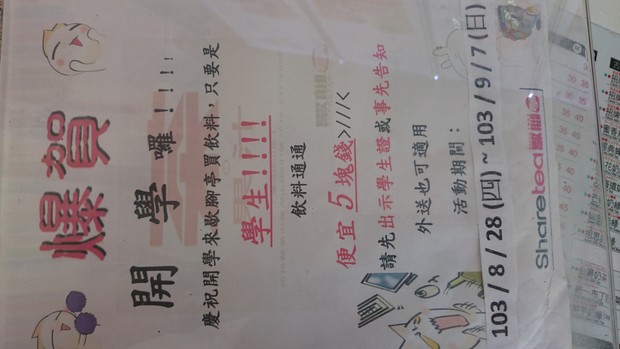 爆賀
開學囉!!!!
慶祝開學來歇腳亭買飲料,只要是
學生!!!!
飲料通通
便宜5塊錢>///<
請先出示學生證或事先告知
外送也可適用
活動期間：
103/8/28(四)~103/9/7(日)
Sharetea 歇腳亭